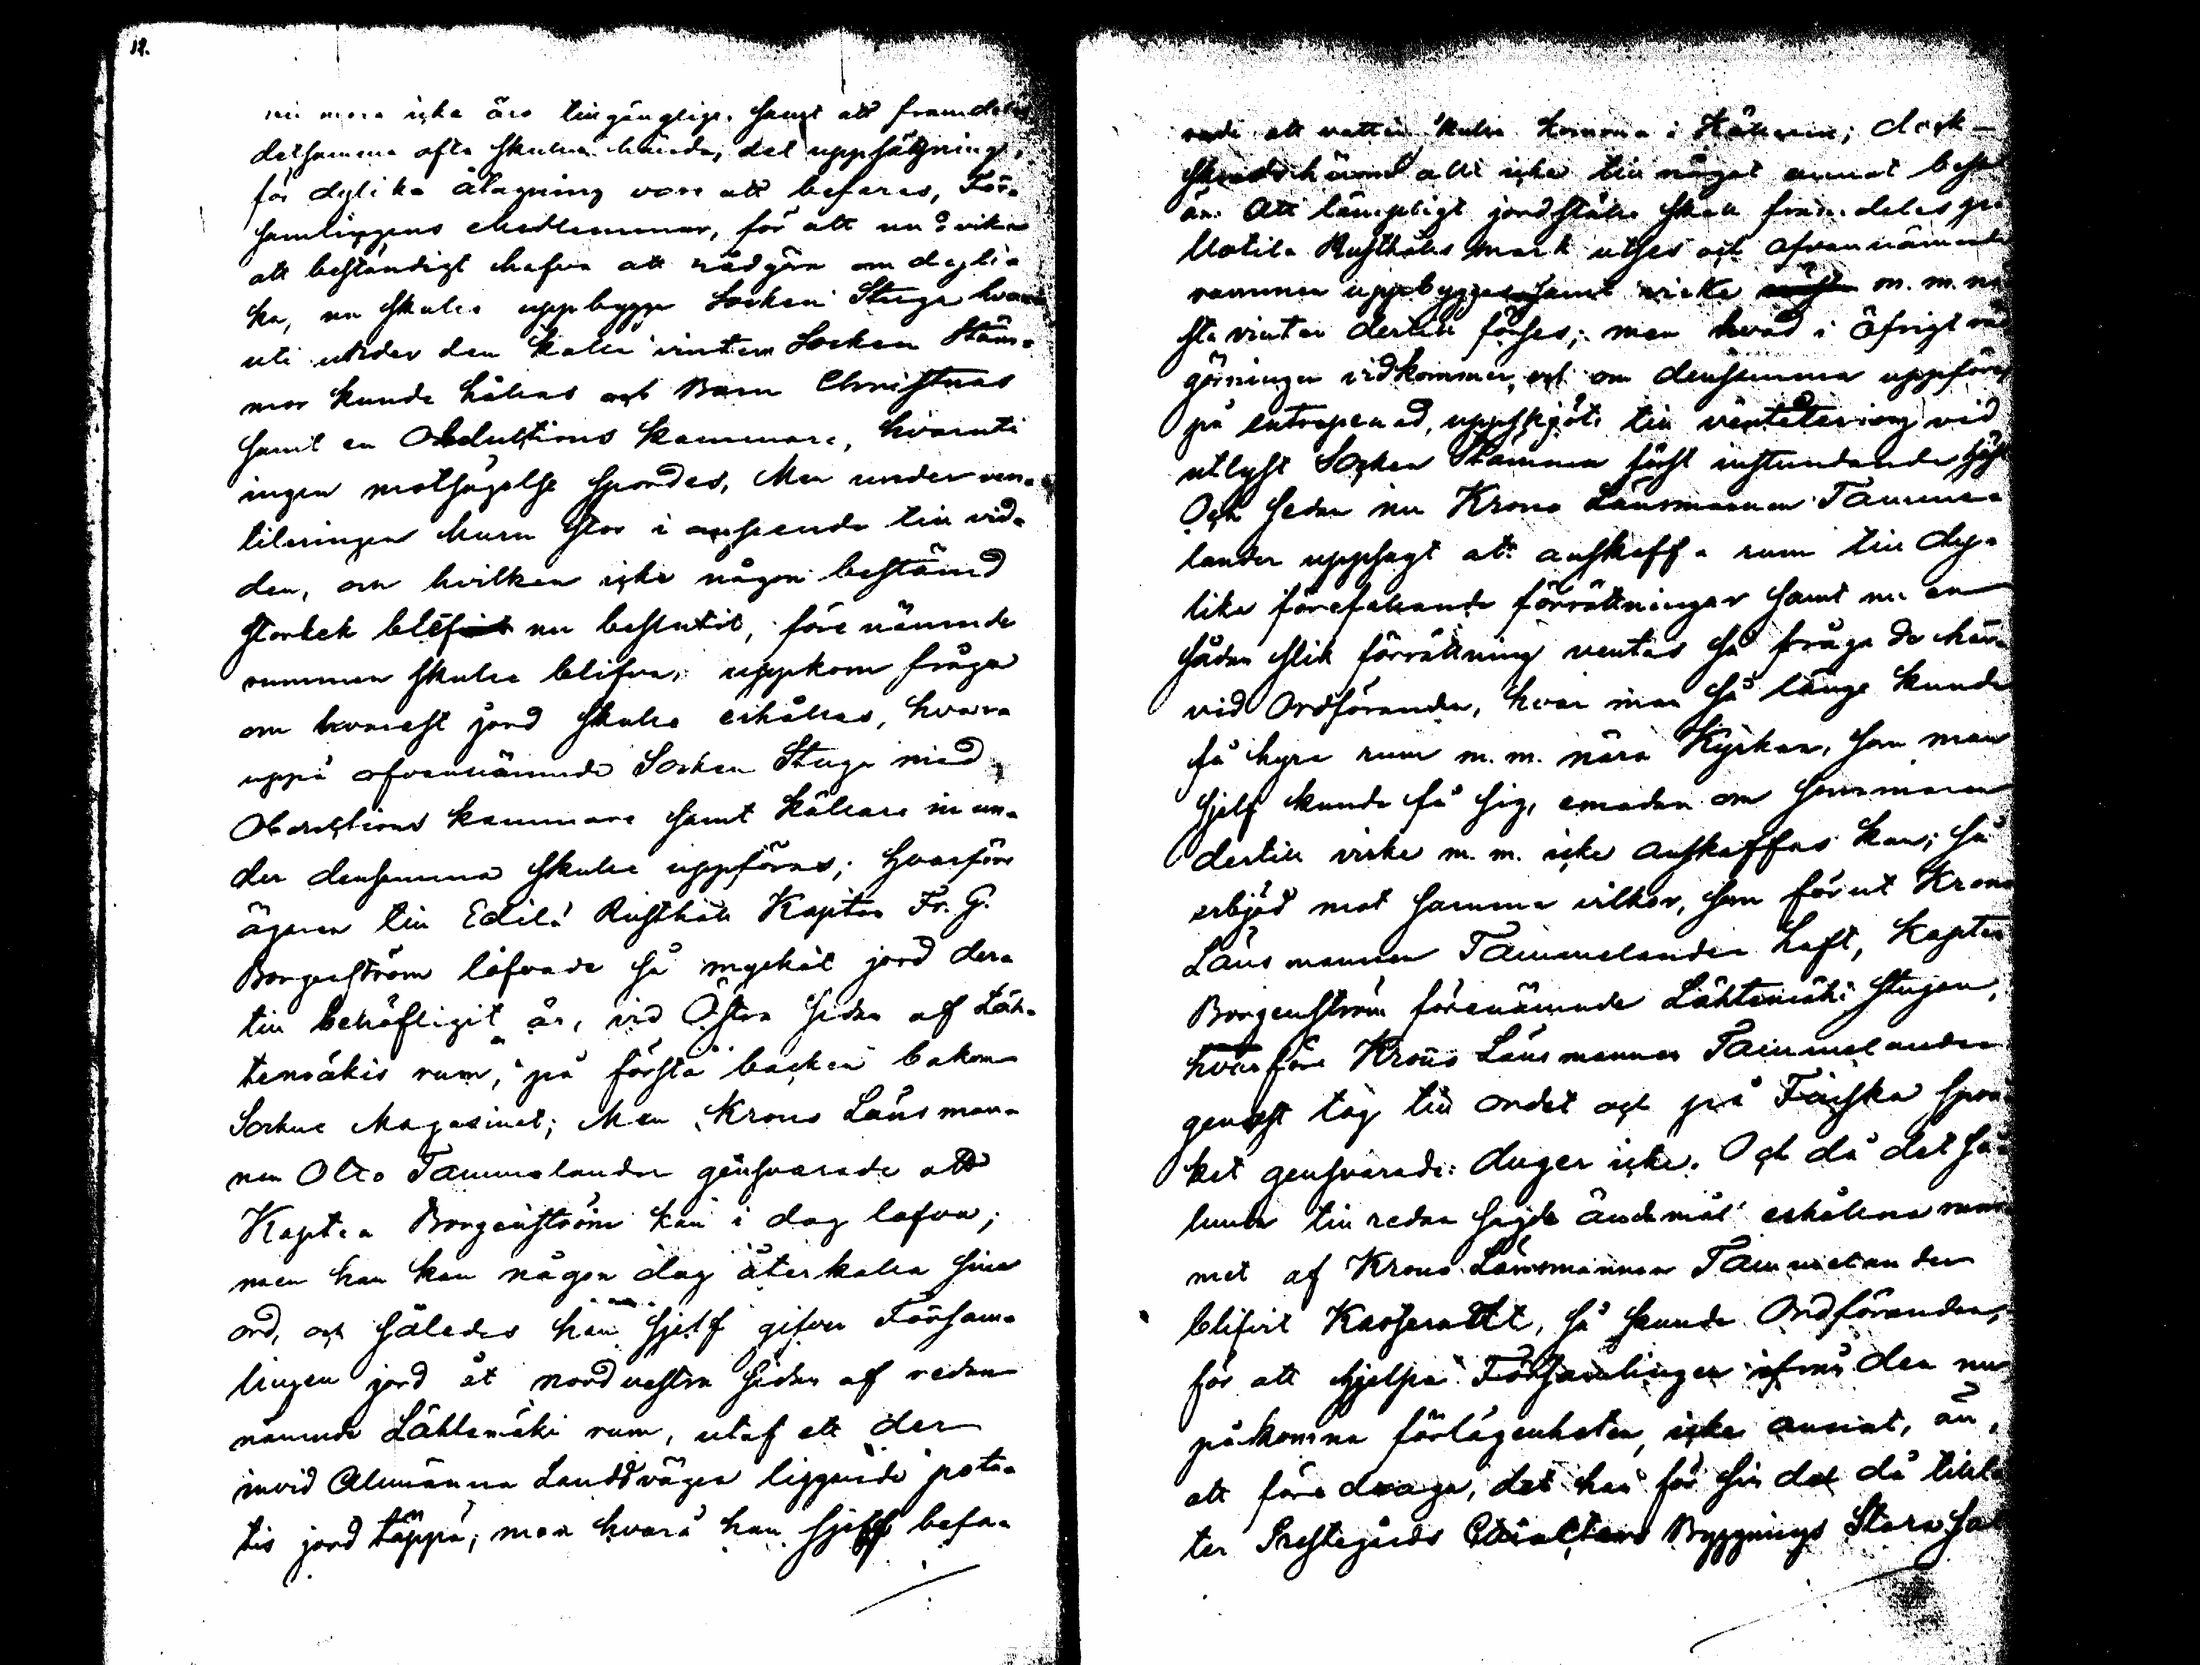 12.
nu mera icke äro tillgänglige. Samt att framdeles
detsamma ofta skulle hända, det uppsägning,
för dylika ålagning vore att befaras, För-
samlingens Medlemmar, för att undvika
att beständigt hafva att rådgöra om dyli-
ka, nu skulle uppbygga Socken Stuga hvar-
uti under den kalla vintern Socken Stäm-
mor kunde hållas och Barn Christnas
samt en Obduktions kammare, hvaruti
ingen motsägelse spordes, Men under ven-
tileringen huru stor i anseende till vid-
den, om hvilken icke någon bestämd
storlek blef nu beslutit, förenämnde
rummen skulle blifva, uppkom fråga
om hvarest jord skulle erhållas, hvar-
uppå ofvannämnde Socken Stuga med
Obductions kammare samt källare in un-
der densamma skulle uppföras; hvarföre
ägaren till Edilä Rusthåll Kapten Fr. G.
Borgenström låfvade så mycket jord der-
till behöfligit är, vid Östra sidan af Läh-
temäkis rum, på första backen bakom
Sockne Magasinet; Men Krono Länsman-
nen Otto Tammelander gensvarade att
Kapten Borgenström kan i dag lofva;
men han kan någon dag återkalla sina
ord, och således han sjelf gifver Försam-
lingen jord åt nordvestra sidan af redan
nämnde Lähtemäki rum, utaf ett der
invid Allmänna Landsvägen liggande pota-
tis jord täppa; men hvarå han sjelf befa-
rade att vatten skulle komma i Källaren; dock
att icke till något annat beslut
än: Att lämpligt jordställe skall framdeles på
Uotila Rusthålls mark utses och ofvannämnde
rummen uppbyggas samt virke m. m. nä-
sta vinter dertill förses; men hvad i öfrigt
görningen vidkommer, och om densamma uppföres
på entrepenad, uppskjöts till ventilering vid
utlyst Socken Stämma först instundande höst
Och sedan nu Krono Länsmannen Tamme-
lander uppsagt att anskaffa rum till dy-
lika förefallande förrättningar samt nu en
sådan slik förrättning ventas så frågade här-
vid Ordföranden, hvar man så länge kunde
få hyra rum m. m. nära Kyrkan, som man
sjelf kunde få sig, emedan om sommaren
dertill virke m. m. icke anskaffas kan; så
erbjöd mot samma vilkor, som förut Krono
Länsmannen Tammelander haft, Kapten
Borgenström förenämnde Lähtemäki stugan,
hvarföre Krono Länsmannen Tammelander
genast tog till ordet och på Finska språ-
ket gensvarade: duger icke. Och då det så-
lunda till redan sagde ändamål erhållna rum-
met af Krono Länsmannen Tammelander
blifvit Kasserat, så kunde Ordföranden,
för att hjelpa Församlingen ifrån den nu
påkomna förlägenheten, icke annat, än,
att föredraga, det han för sin del då tillå-
ter Prestegårds Byggnings Stora sal